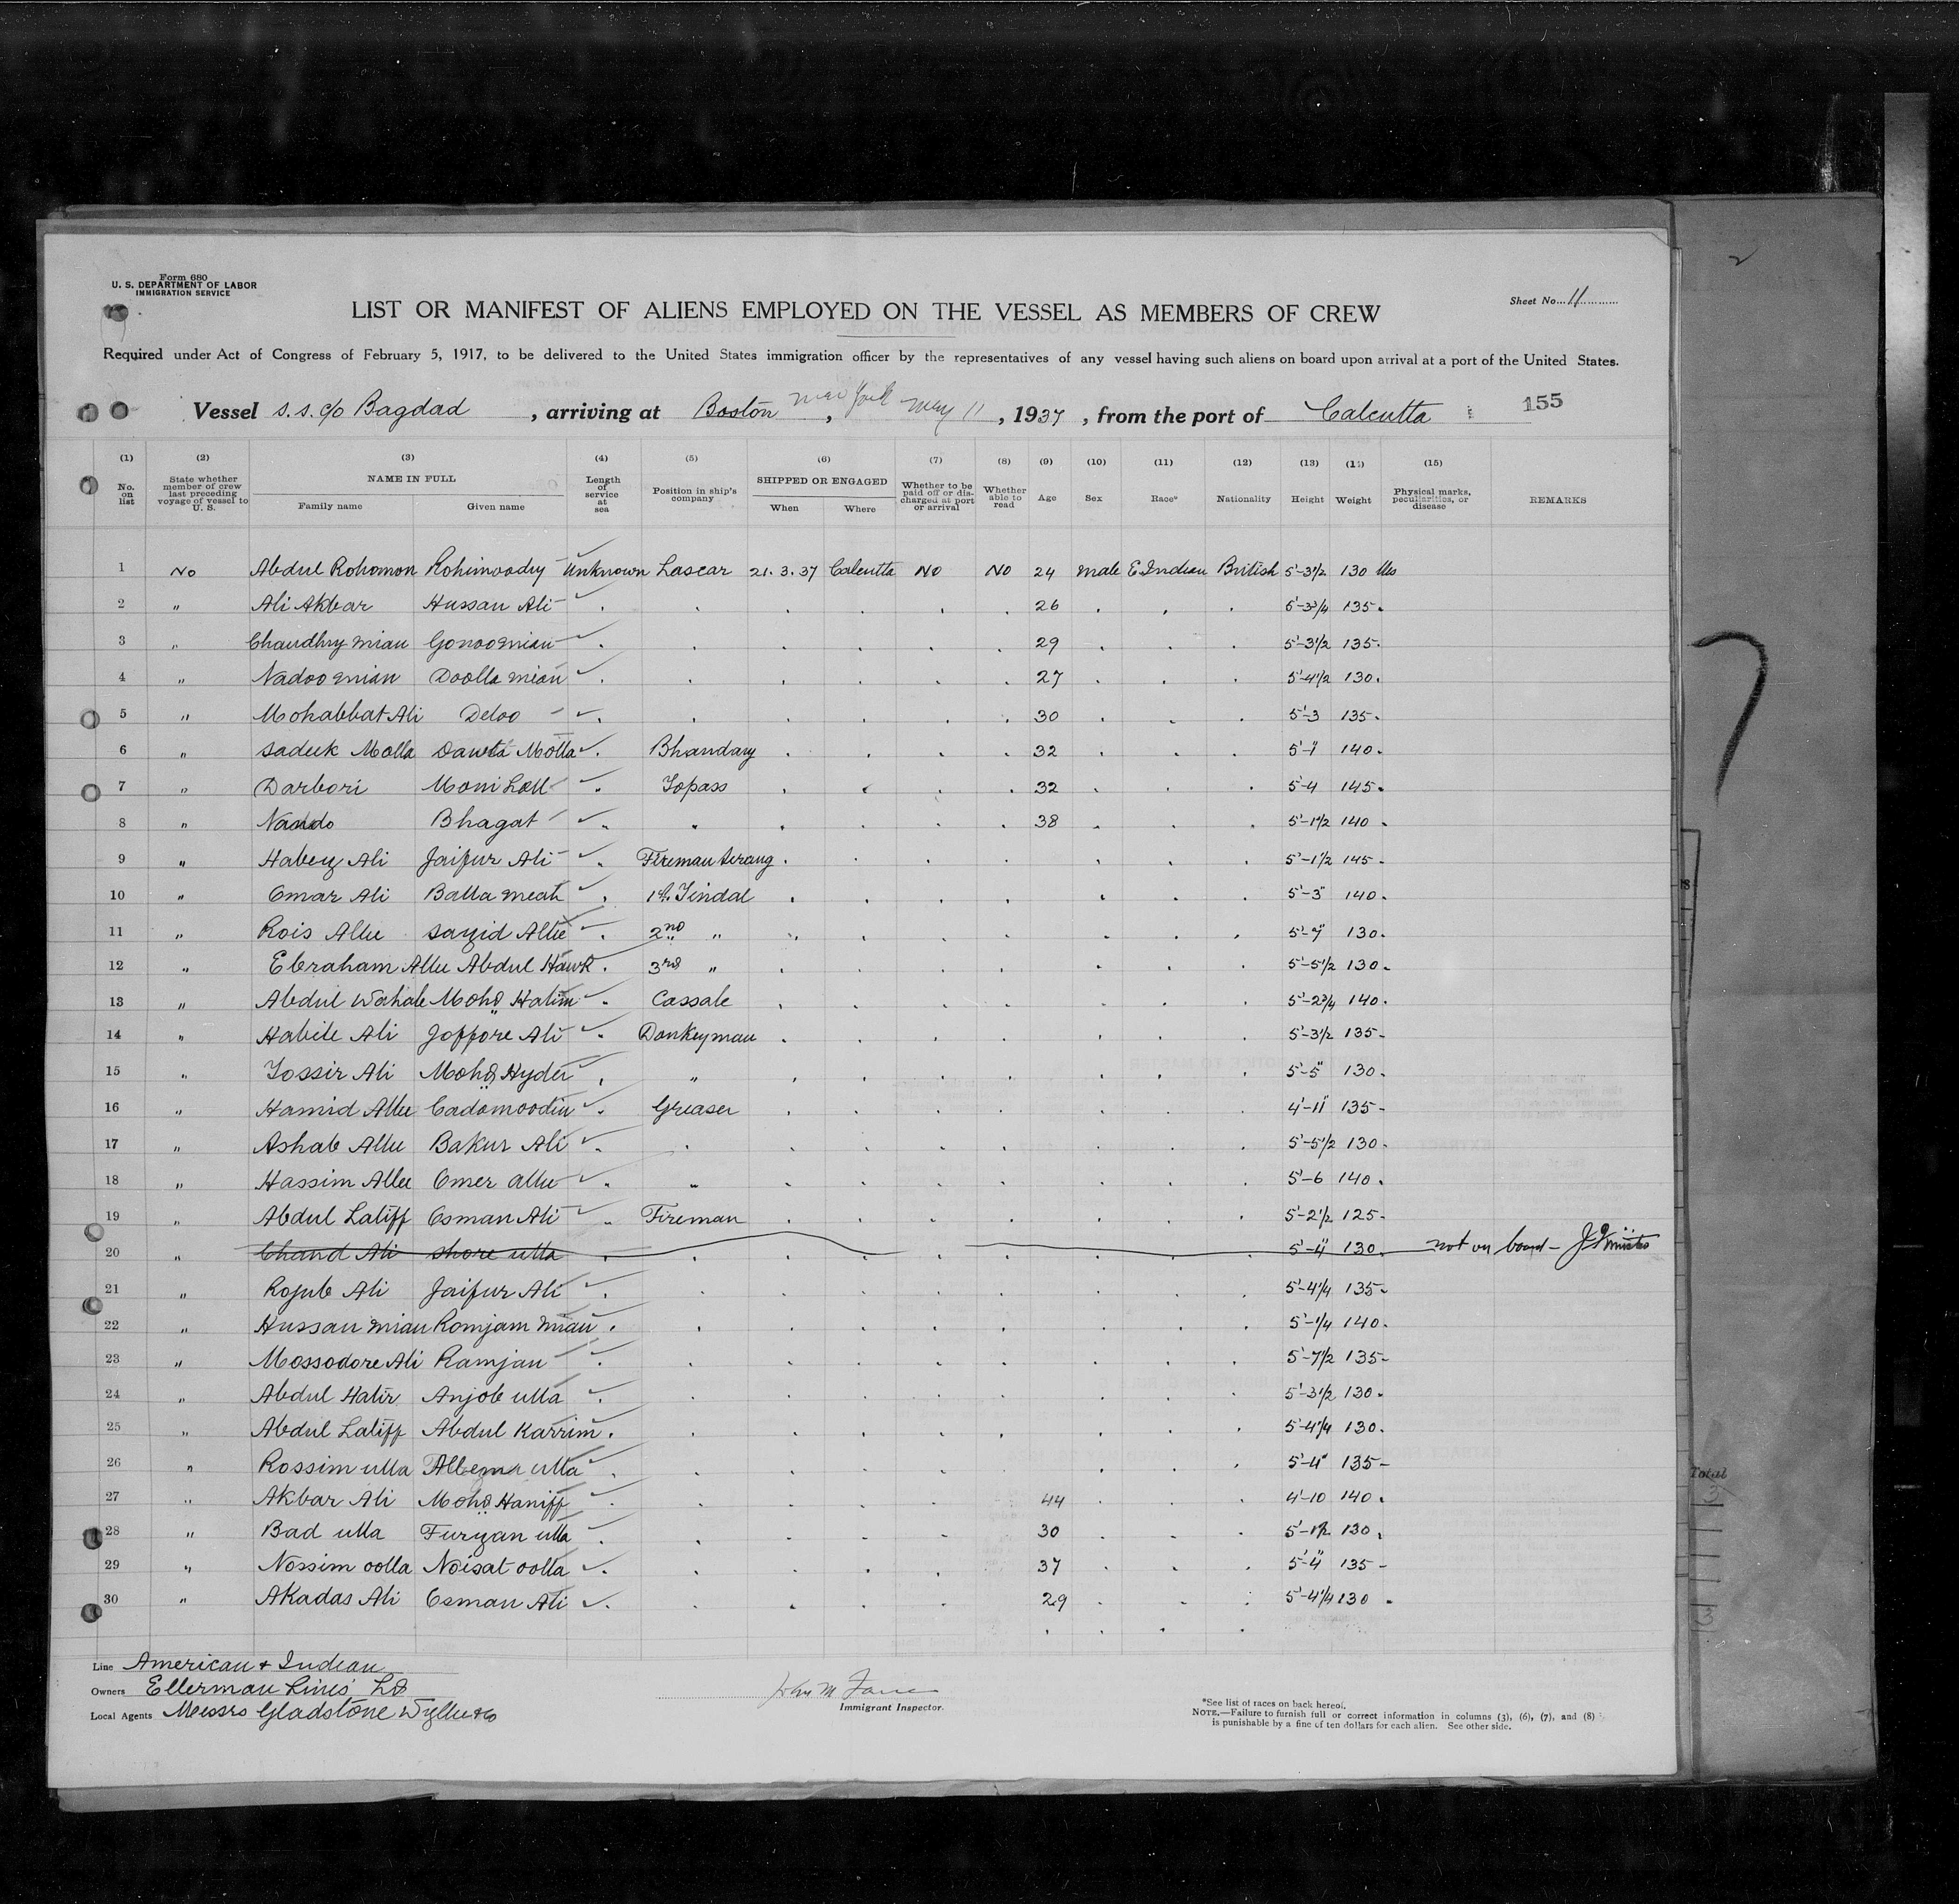 Form 680
U. S. DEPARTMENT OF LABOR
IMMIGRATION SERVICE
LIST OR MANIFEST OF ALIENS EMPLOYED ON THE VESSEL AS MEMBERS OF CREW
Sheet No. 11
Required under Act of Congress of February 5, 1917, to be delivered to the United States immigration officer by the representatives of any vessel having such aliens on board upon arrival at a port of the United States.
Vessel S.S. c/o Bagdad, arriving at Boston, New York May 11, 1937, from the port of Calcutta 155
(1) (2) (3) (4) (5) (6) (7) (8) (9) (10) (11) (12) (13) (14) (15)
No. on list State whether member of crew last preceding voyage of vessel to U. S. NAME IN FULL Family name Given name Length of service at sea Position in ship's company SHIPPED OR ENGAGED When Where Whether to be paid off or discharged at port or arrival Whether able to read Age Sex Race* Nationality Height Weight Physical marks, peculiarities, or disease REMARKS
1 No Abdul Rohomon Rohimoodry Unknown Lascar 21.3.37 Calcutta No No 24 male E Indian British 5'-3 1/2 130 lbs
2 " Ali Akbar Hussan Ali 26 5'-3 3/4 135
3 " Chaudhry Mian Gonoo Mian 29 5'-3 1/2 135
4 " Nadoo Mian Doolla Mian 27 5'-4 1/2 130
5 " Mohabbat Ali Deloo 30 5'-3 135
6 " Saduk Molla Molla Bhandary 32 140
7 " Darbori Moni Lall Topass 32 5-4 145
8 " Nando Bhagat " 38 5'-1 1/2 140
9 " Habez Ali Jaifur Ali Fireman Serang 5'-1 1/2 145
10 " Omar Ali Balla Meah 1st Tindal 5'-3" 140
11 " Rois Allie Sayid Allie 2nd " 130
12 " Ebraham Allie Abdul Hawk 3rd " 5'-5 1/2 130
13 " Abdul Wahab Mohd Halim Cassab 5'-2 3/4 140
14 " Habib Ali Joffore Ali Donkeyman 5'-3 1/2 135
15 " Tossir Ali Mohd Hyder " 5'-5" 130
16 " Hamid Allie Cadomoodin Greaser 4'-11" 135
17 " Ashab Allie Bakur Ali 5'-5 1/2 130
18 " Hassim Allie Omer Allie " 5'-6 140
19 " Abdul Latiff Osman Ali Fireman 5'-2 1/2 125
20 " Chand Ali Shore Ulla 5'-4" 130 not on board
21 " Rojub Ali Jaifur Ali 5'-4 1/4 135
22 " Hussan Mian Romjam Mian 5'-1/4 140
23 " Mossodore Ali Ramjan 5'-7 1/2 135
24 " Abdul Hatir Anjob Ulla 5'-3 1/2 130
25 " Abdul Latiff Abdul Karrim 5'-4 1/4 130
26 " Rossim Ulla Ulla 5'-4" 135
27 " Akbar Ali Mohd Haniff 44 4'-10 140
28 " Bad Ulla Furzan Ulla 30 5'-1 1/2 130
29 " Nossim Oolla Noisat Oolla 37 5'-4" 135
30 " Akadas Ali Osman Ali 29 5'-4 1/4 130
Line American & Indian
Owners Ellerman Lines Ld
Local Agents Messrs Gladstone Wyllie & Co
Immigrant Inspector.
*See list of races on back hereof.
NOTE.—Failure to furnish full or correct information in columns (3), (6), (7), and (8)
is punishable by a fine of ten dollars for each alien. See other side.
Total